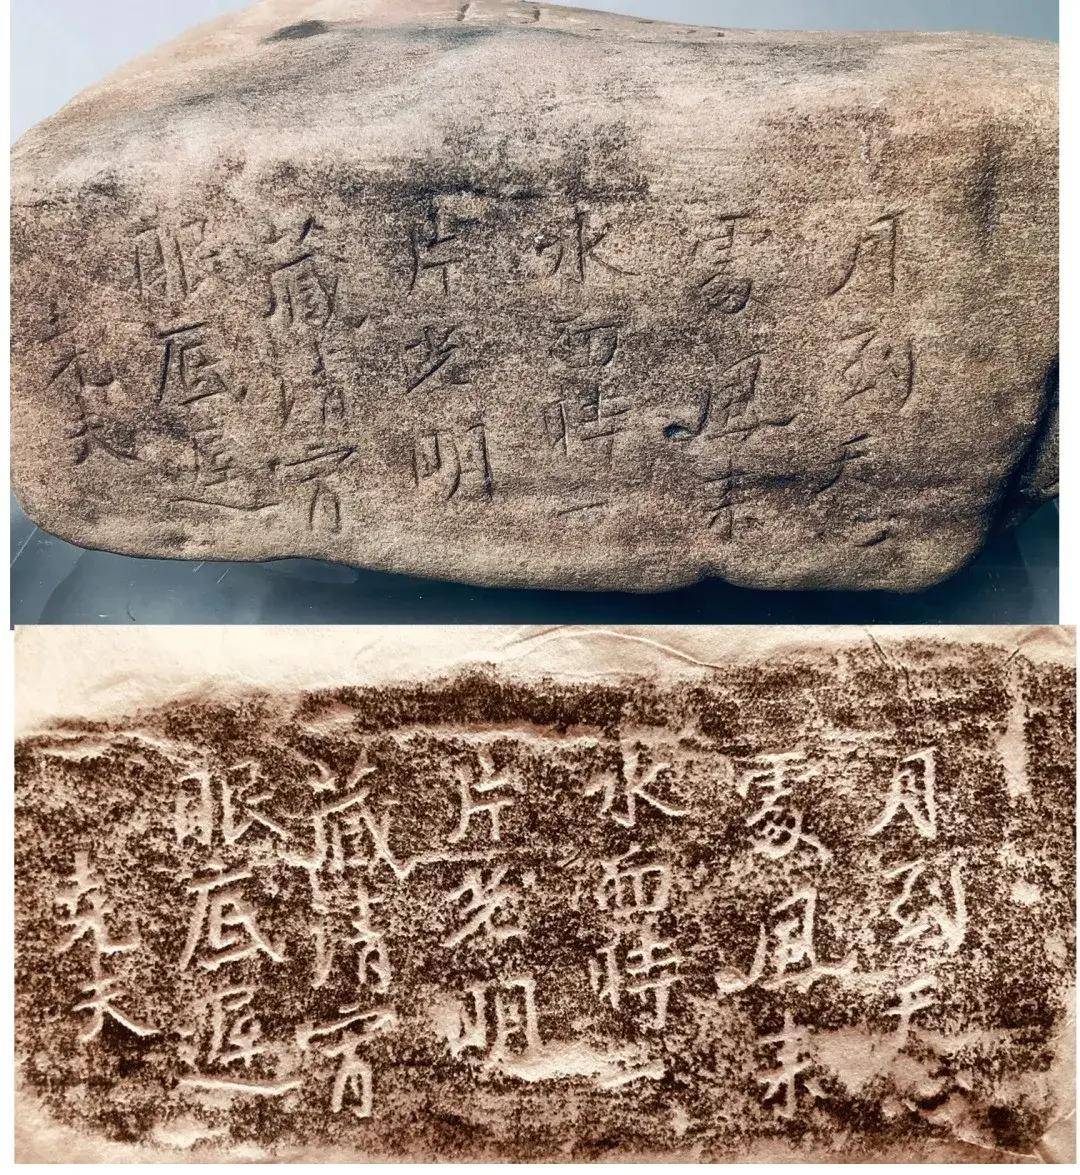 月到天心
處風来
水面時一
片光明
藏清宵
眼底
尭夫
月到天
處風来
水面時一
片光明
藏清宵
眼底
尭夫